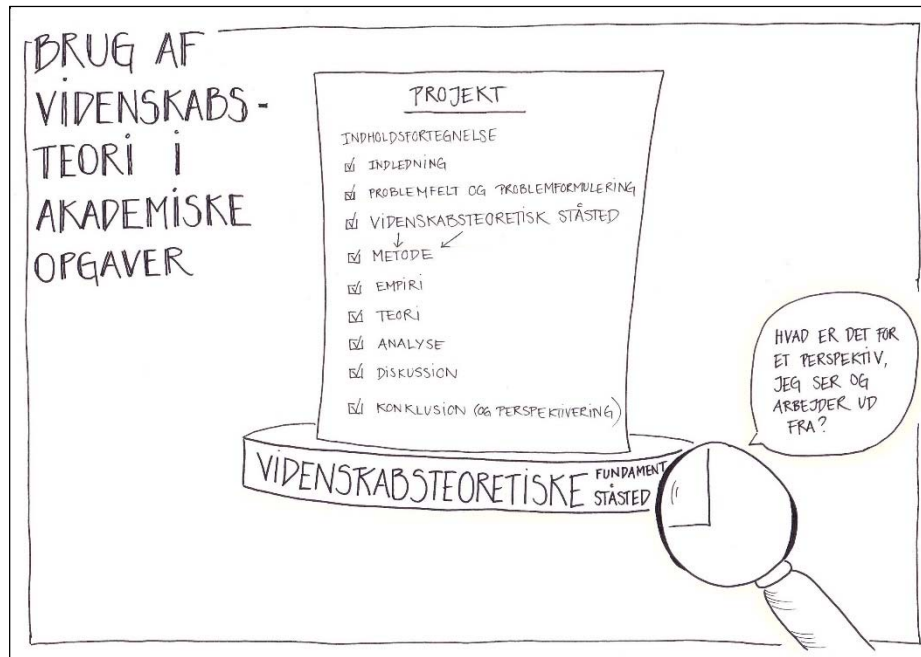 BRUG AF
VIDENSKABS-
TEORI I
AKADEMISKE
OPGAVER
PROJEKT
INDHOLDSFORTEGNELSE
INDLEDNING
PROBLEMFELT OG PROBLEMFORMULERING
VIDENSKABSTEORETISK STÅSTED
METODE
EMPIRI
TEORI
ANALYSE
DISKUSSION
KONKLUSION (OG PERSPEKTIVERING)
VIDENSKABSTEORETISKE FUNDAMENT
STÅSTED
HVAD ER DET FOR
ET PERSPEKTIV,
JEG SER OG
ARBEJDER UD
FRA?